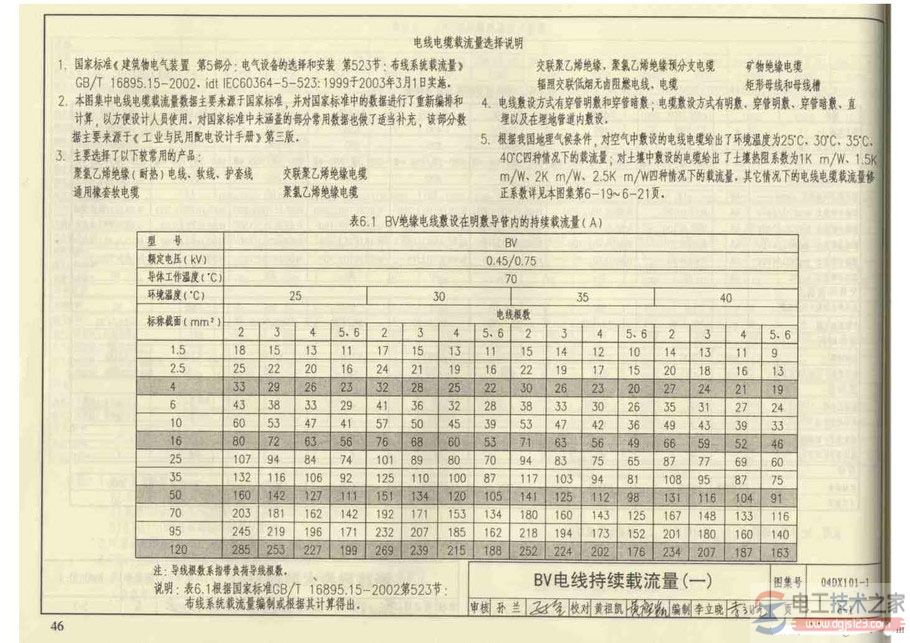 电线电缆载流量选择说明
1. 国家标准《建筑物电气装置 第5部分: 电气设备的选择和安装 第523节: 布线系统载流量》
GB/T 16895.15-2002, idt IEC60364-5-523:1999于2003年3月1日实施。
2. 本图集中电线电缆载流量数据主要来源于国家标准, 并对国家标准中的数据进行了重新编排和
计算, 以方便设计人员使用。对国家标准中未涵盖的部分常用数据也做了适当补充, 该部分数
据主要来源于《工业与民用配电设计手册》第三版。
3. 主要选择了以下较常用的产品:
聚氯乙烯绝缘(耐热)电线、软线、护套线 交联聚乙烯绝缘电缆
通用橡套软电缆 聚氯乙烯绝缘电缆
交联聚乙烯绝缘、聚氯乙烯绝缘预分支电缆 矿物绝缘电缆
辐照交联低烟无卤阻燃电线、电缆 矩形母线和母线槽
4. 电线敷设方式有穿管明敷和穿管暗敷; 电缆敷设方式有明敷、穿管明敷、穿管暗敷、直
埋以及在埋地管道内敷设。
5. 根据我国地理气候条件, 对空气中敷设的电线电缆给出了环境温度为25℃、30℃、35℃、
40℃四种情况下的载流量; 对土壤中敷设的电缆给出了土壤热阻系数为1K m/W、1.5K
m/W、2K m/W、2.5K m/W四种情况下的载流量。其它情况下的电线电缆载流量修
正系数详见本图集第6-19~6-21页。
表6.1 BV绝缘电线敷设在明敷导管内的持续载流量(A)
型 号 BV
额定电压(kV) 0.45/0.75
导体工作温度(℃) 70
环境温度(℃) 25 30 35 40
标称截面(mm²) 电线根数
2 3 4 5、6 2 3 4 5、6 2 3 4 5、6 2 3 4 5、6
1.5 18 15 13 11 17 15 13 11 15 14 12 10 14 13 11 9
2.5 25 22 20 16 24 21 19 16 22 19 17 15 20 18 16 13
4 33 29 26 23 32 28 25 22 30 26 23 20 27 24 21 19
6 43 38 33 29 41 36 32 28 38 33 30 26 35 31 27 24
10 60 53 47 41 57 50 45 39 53 47 42 36 49 43 39 33
16 80 72 63 56 76 68 60 53 71 63 56 49 66 59 52 46
25 107 94 84 74 101 89 80 70 94 83 75 65 87 77 69 60
35 132 116 106 92 125 110 100 87 117 103 94 81 108 95 87 75
50 160 142 127 111 151 134 120 105 141 125 112 98 131 116 104 91
70 203 181 162 142 192 171 153 134 180 160 143 125 167 148 133 116
95 245 219 196 171 232 207 185 162 218 194 173 152 201 180 160 140
120 285 253 227 199 269 239 215 188 252 224 202 176 234 207 187 163
注: 导线根数系指带负荷导线根数。
说明: 表6.1根据国家标准GB/T 16895.15-2002第523节:
布线系统载流量编制或根据其计算得出。
BV电线持续载流量(一) 图集号 04DX101-1
审核 孙 兰 校对 黄祖凯 编制 李立晓 页
46
电工技术之家
www.dqjs123.com